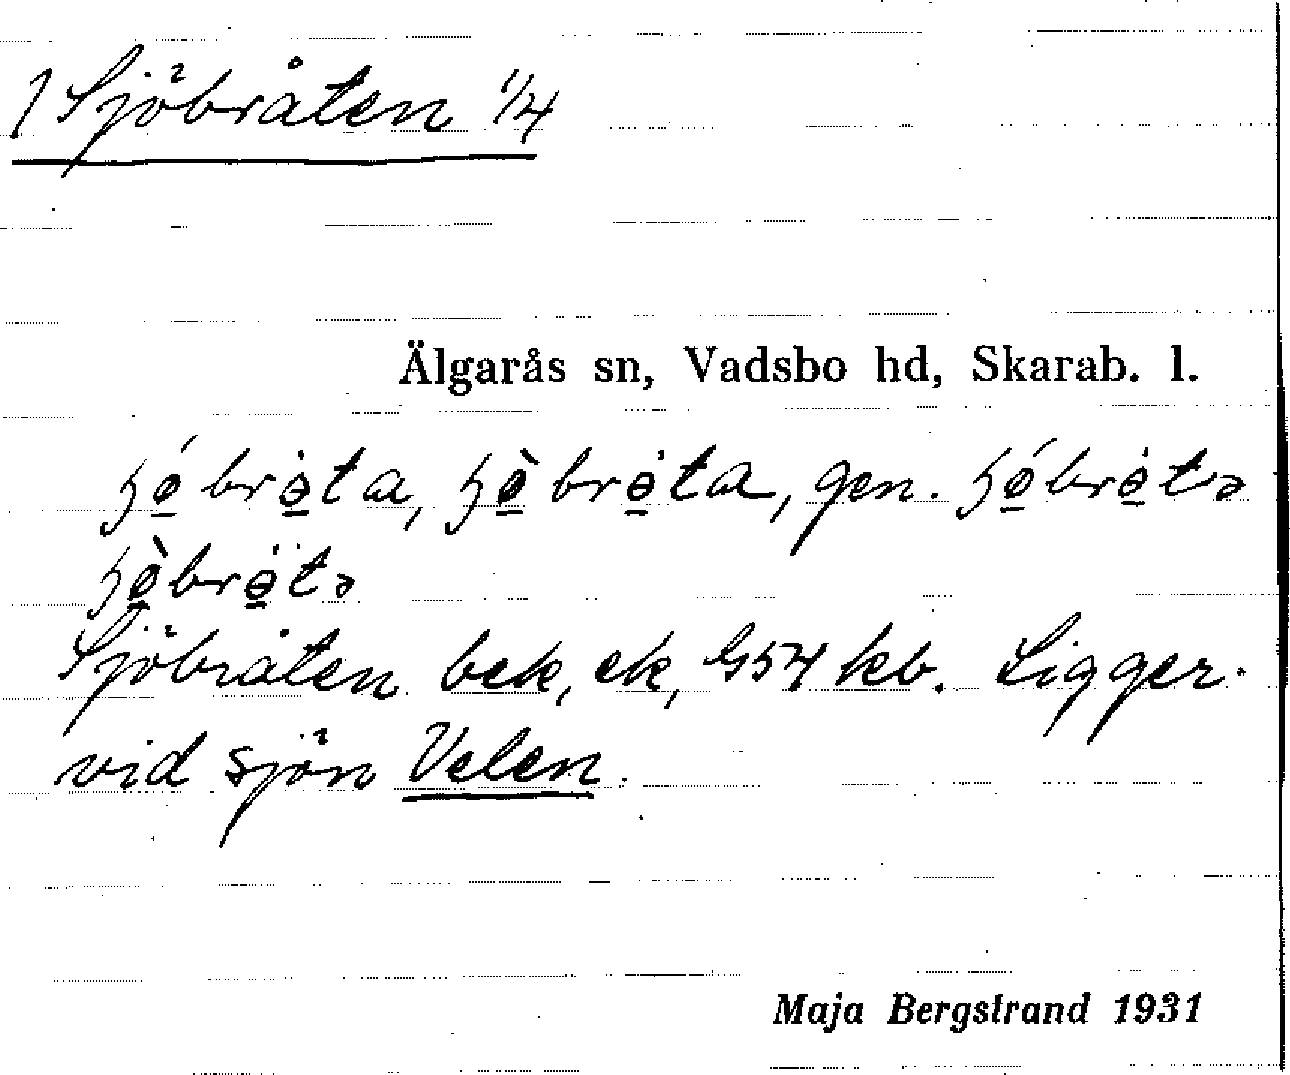 1 Sjöbråten 1/4
Älgarås sn, Vadsbo hd, Skarab. l.
ɧǿ̠brө̠̀ta, ɧø̠̀brө̠̀ta, gen. ɧǿ̠brө̠̀tə
ɧø̠̀brӫ̠tə
Sjöbråten bek, ek, G54 kb. Ligger
vid sjön Velen.
Maja Bergstrand 1931